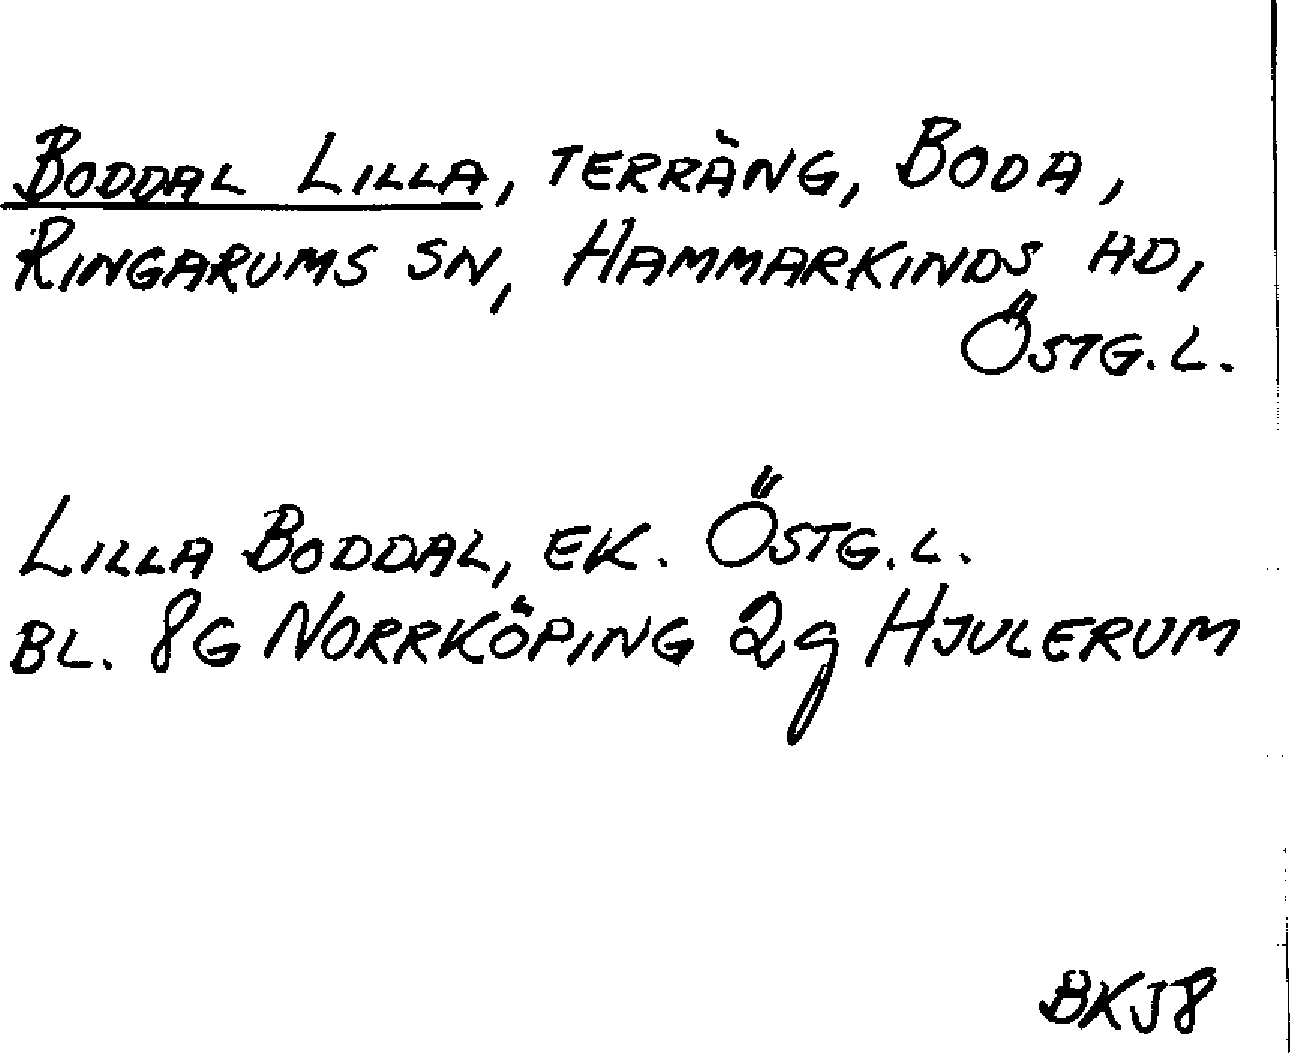 BODDAL LILLA, TERRÄNG, BODA,
RINGARUMS SN, HAMMARKINDS HD,
ÖSTG.L.
LILLA BODDAL, EK. ÖSTG.L.
BL. 8G NORRKÖPING 2g HJULERUM
BKJ8